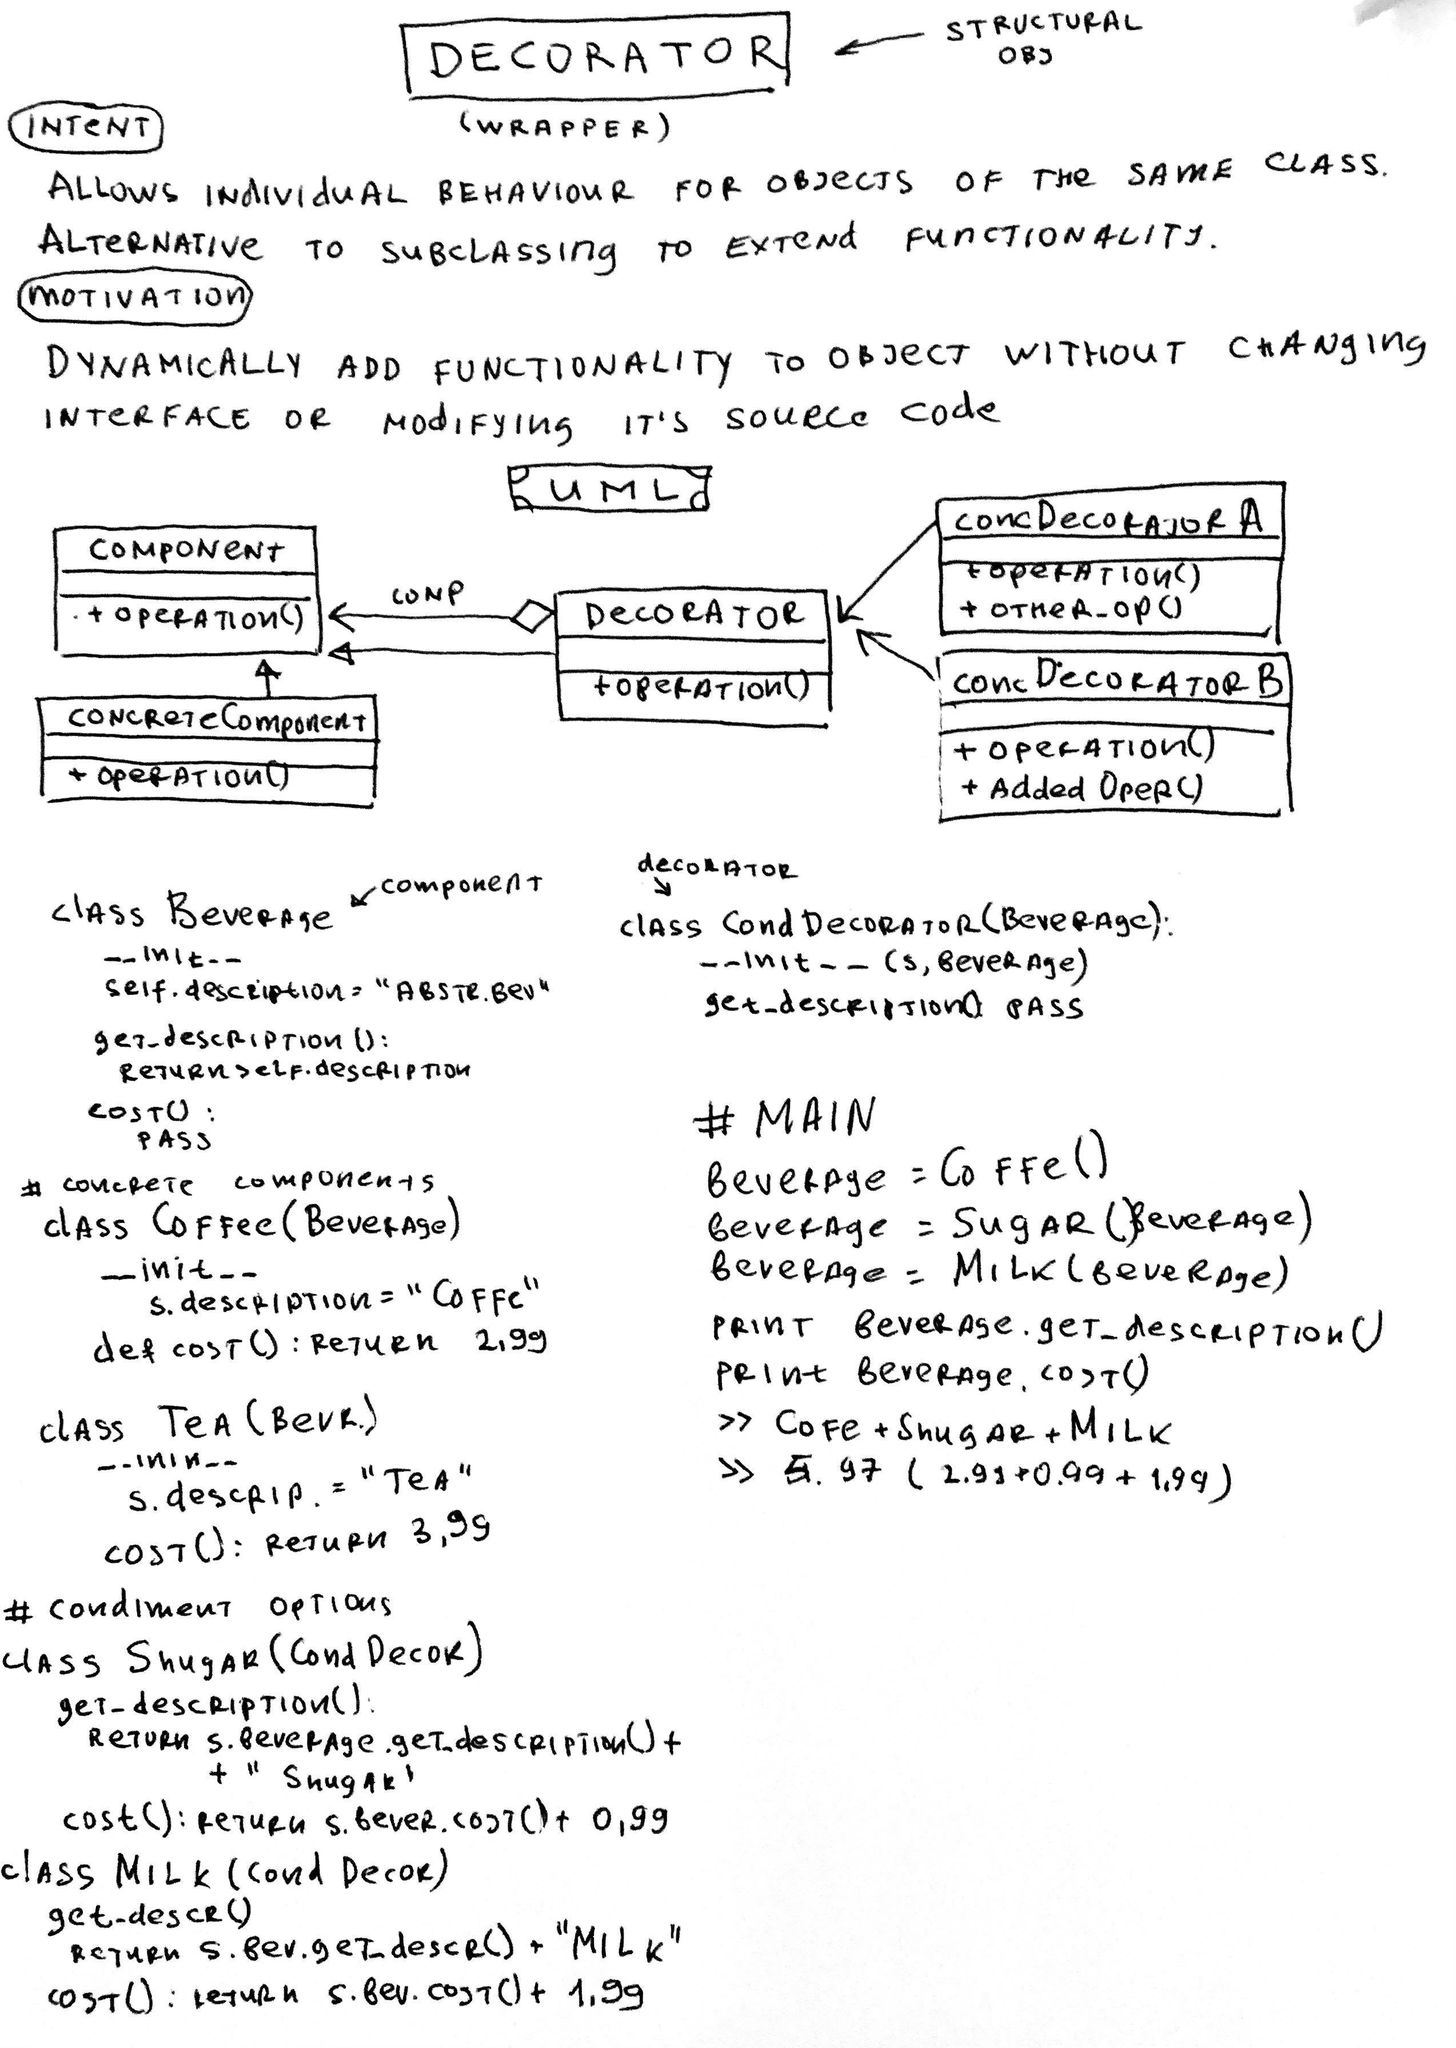 DECORATOR
STRUCTURAL
OBJ
(WRAPPER)
INTENT
ALLOWS INDIVIDUAL BEHAVIOUR FOR OBJECTS OF THE SAME CLASS.
ALTERNATIVE TO SUBCLASSING TO EXTEND FUNCTIONALITY.
MOTIVATION
DYNAMICALLY ADD FUNCTIONALITY TO OBJECT WITHOUT CHANGING
INTERFACE OR MODIFYING IT'S SOURCE CODE
UML
COMPONENT
+ OPERATION()
CONCRETE COMPONENT
+ OPERATION()
COMP
DECORATOR
+OPERATION()
CONCDECORATOR A
+OPERATION()
+ OTHER_OP()
CONCDECORATOR B
+ OPERATION()
+ Added Oper()
class Beverage
component
__init__
self.description = "ABSTR.Bev"
get_description():
return self.description
cost():
PASS
# concrete components
class Coffee(Beverage)
__init__
s.description = "Coffe"
def cost(): return 2,99
class Tea (Bevr.)
__inin__
s.descrip. = "Tea"
cost(): return 3,99
# condiment options
class Shugar(CondDecor)
get_description():
return s.beverage.get_description() +
+ " Shugar'
cost(): return s.bever.cost() + 0,99
class Milk (Cond Decor)
get_descr()
return s.bev.get_descr() + "MILK"
cost(): return s.bev.cost() + 1,99
decorator
class CondDecorator(Beverage):
__init__ (s, beverage)
get_description() PASS
# MAIN
beverage = Coffe()
beverage = Sugar(Beverage)
beverage = Milk(beverage)
print beverage.get_description()
print beverage.cost()
>> Cofe + Shugar + Milk
>> 5.97 (2.99+0.99+1,99)